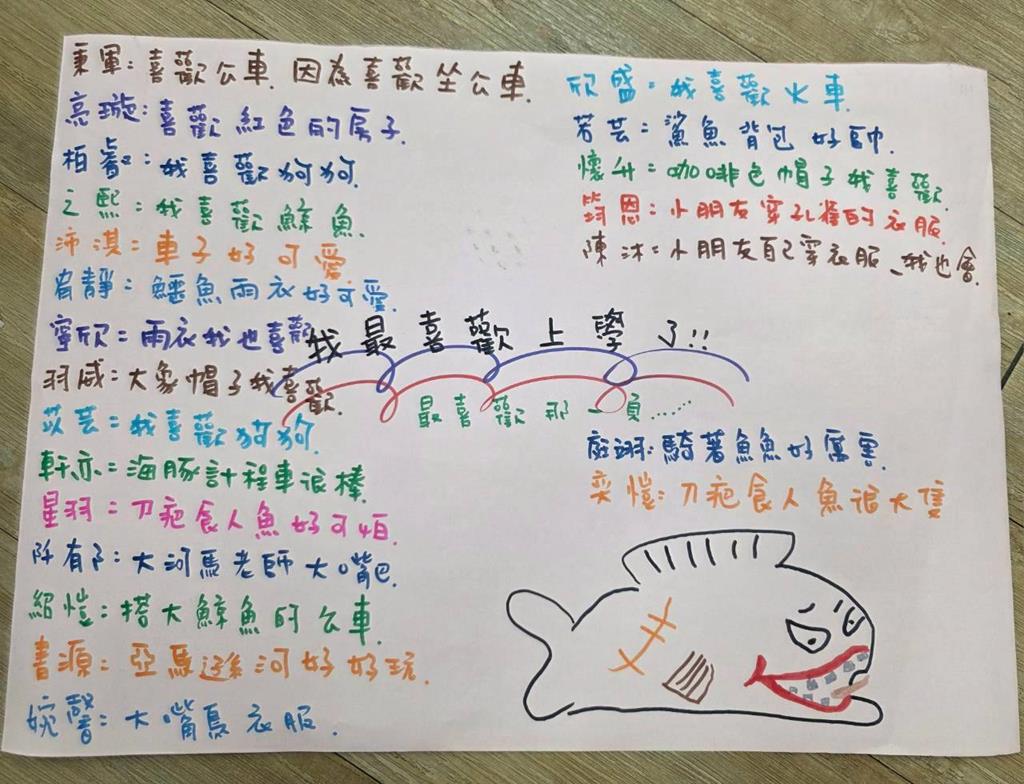 秉軍:喜歡公車 因為喜歡坐公車.
亮璇:喜歡紅色的房子.
柏睿:我喜歡狗狗.
之熙:我喜歡鯨魚.
沛淇:車子好可愛.
宥靜:鱷魚雨衣好可愛.
寧欣:雨衣我也喜歡
羽威:大象帽子我喜歡.
苡芸:我喜歡狗狗
軒亦:海豚計程車很棒.
星羽:刀疤食人魚好可怕.
阡有阝:大河馬老師大嘴巴.
紹愷:搭大鯨魚的公車.
書源:亞馬遜河好好玩.
婉馨:大嘴鳥衣服.
我最喜歡上學了!!
最喜歡那一頁......
欣盛:我喜歡火車.
若芸:鯊魚背包好帥.
懷升:咖啡色帽子我喜歡.
筠恩:小朋友穿孔雀的衣服.
陳沐:小朋友自己穿衣服、我也會.
庭翊:騎著魚魚好厲害.
奕愷:刀疤食人魚很大隻